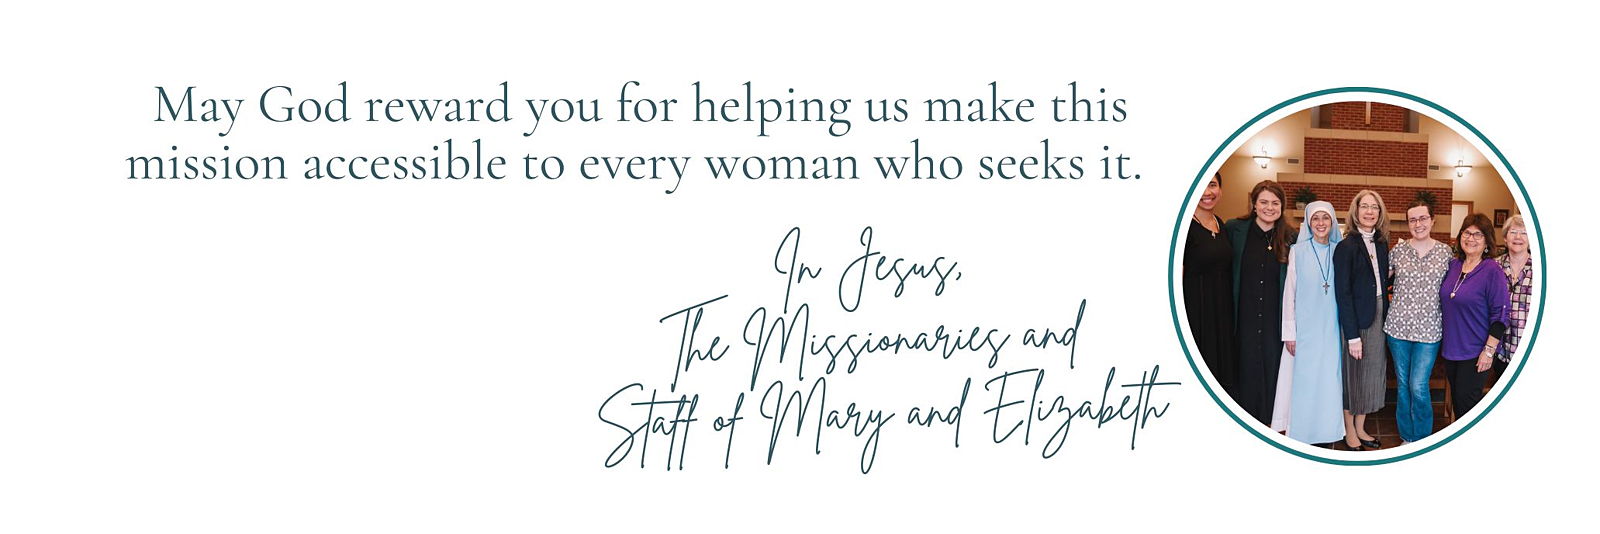 May God reward you for helping us make this
mission accessible to every woman who seeks it.
In Jesus,
The Missionaries and
Staff of Mary and Elizabeth